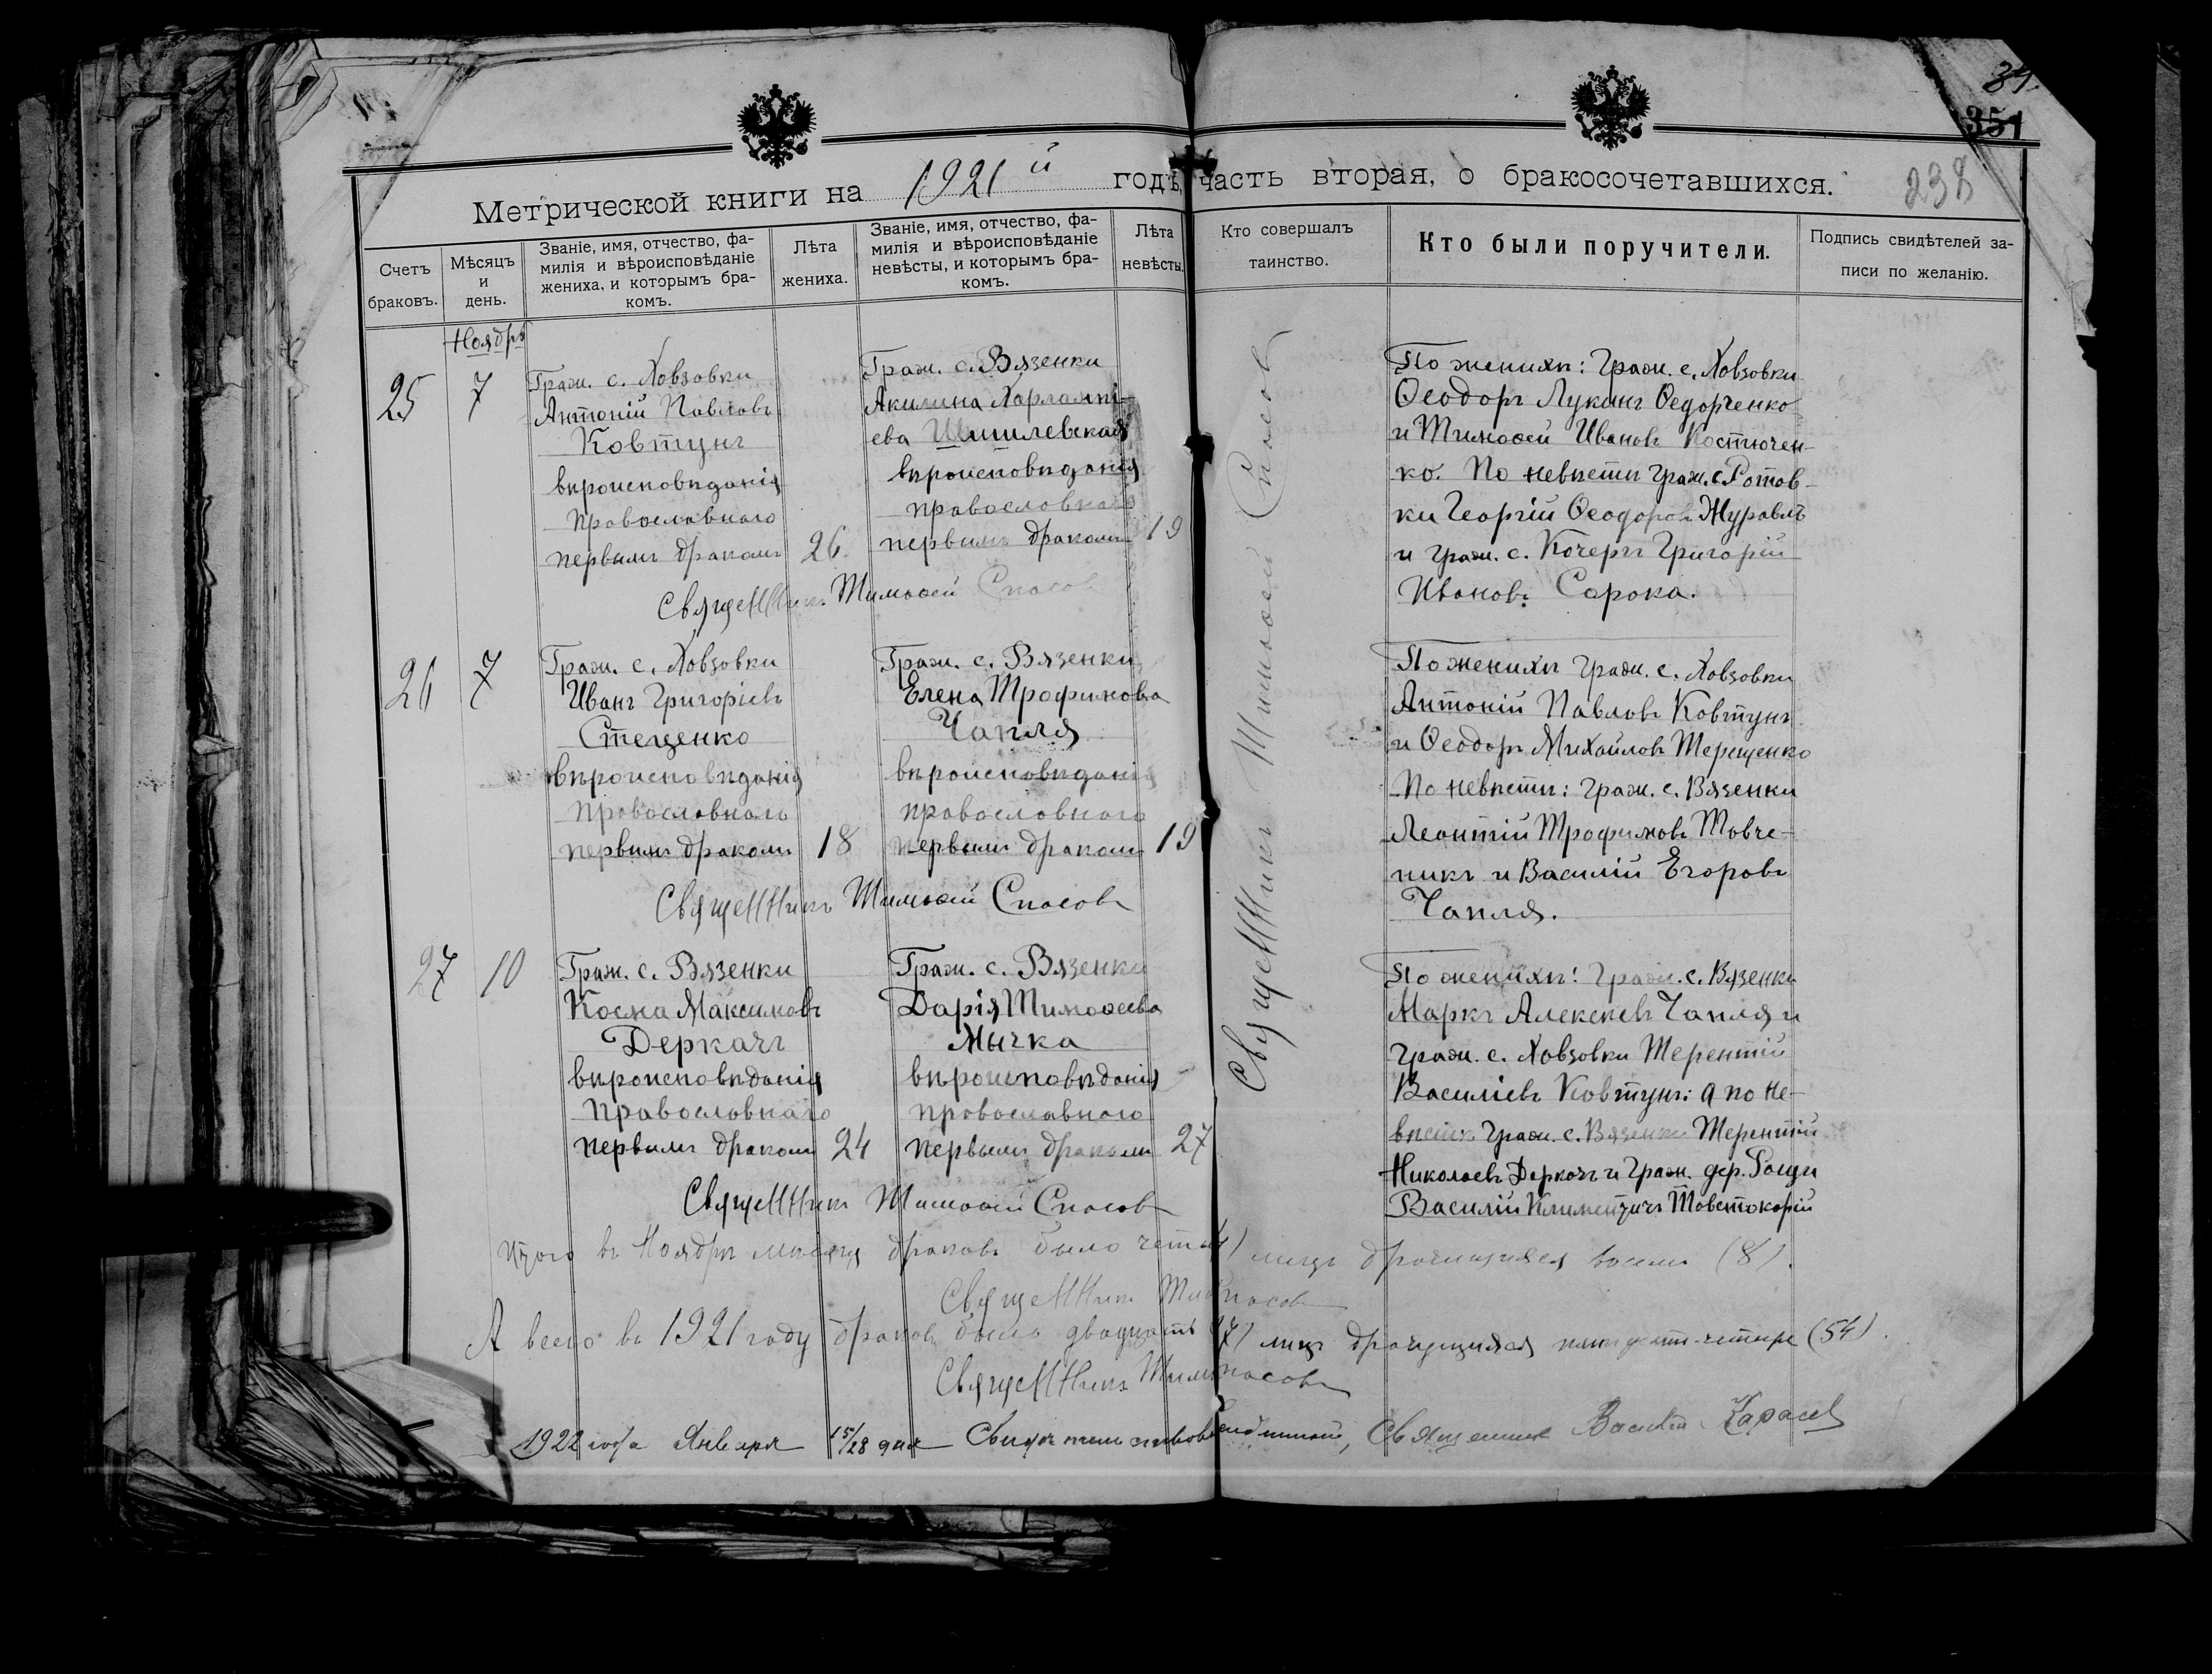 34.
351
238
Метрической книги на 1921й годъ, часть вторая, о бракосочетавшихся.
Счетъ браковъ.
Мѣсяцъ и день.
Званіе, имя, отчество, фа-
милія и вѣроисповѣданіе
жениха, и которымъ бра-
комъ.
Лѣта жениха.
Званіе, имя, отчество, фа-
милія и вѣроисповѣданіе
невѣсты, и которымъ бра-
комъ.
Лѣта невѣсты.
Кто совершалъ
таинство.
Кто были поручители.
Подпись свидѣтелей за-
писи по желанію.
Ноябрь
25
7
Граж. с. Ховзовки
Антоній Павловъ
Ковтунъ
вѣроисповѣданія
православнаго
первымъ бракомъ
26
Граж. с. Вязенки
Акилина Харлампі-
ева Шишлевская
вѣроисповѣданія
православнаго
первымъ бракомъ
19
Священникъ Тимоѳей Спасовъ
По женихѣ: Граж. с. Ховзовки
Ѳеодоръ Лукинъ Ѳедорченко
и Тимоѳей Ивановъ Костючен-
ко. По невѣстѣ Граж. с. Ротов-
ки Георгій Ѳеодоровъ Журавль
и Граж. с. Кочергъ Григорій
Ивановъ Сорока.
26
7
Граж. с. Ховзовки
Иванъ Григоріевъ
Стеценко
вѣроисповѣданія
православнаго
первымъ бракомъ
18
Граж. с. Вязенки
Елена Трофимова
Чапля
вѣроисповѣданія
православнаго
первымъ бракомъ
19
Священникъ Тимоѳей Спасовъ
По женихѣ Граж. с. Ховзовки
Антоній Павловъ Ковтунъ
и Ѳеодоръ Михайловъ Терещенко
По невѣстѣ: Граж. с. Вязенки
Леонтій Трофимовъ Товче-
никъ и Василій Егоровъ
Чапля.
27
10
Граж. с. Вязенки
Косма Максимовъ
Деркачъ
вѣроисповѣданія
православнаго
первымъ бракомъ
24
Граж. с. Вязенки
Дарія Тимоѳеева
Мычка
вѣроисповѣданія
православнаго
первымъ бракомъ
27
Священникъ Тимоѳей Спасовъ
По женихѣ: Граж. с. Вязенки
Маркъ Алексѣевъ Чапля и
Граж. с. Ховзовки Терентій
Василіевъ Ковтунъ: а по не-
вѣстѣ Граж. с. Вязенки Терентій
Николаевъ Деркачъ и Граж. дер. Рощи
Василій
Священникъ Тимоѳей Спасовъ
Итого въ Ноябрѣ мѣсяцѣ браковъ было лицъ брачущихся восемь (8).
Священникъ
А всего въ 1921 году браковъ было двадцать лицъ брачущихся пятьдесятъ четыре (54).
Священникъ
1922 года Января 15/28 дня Священникъ Василій Карасев